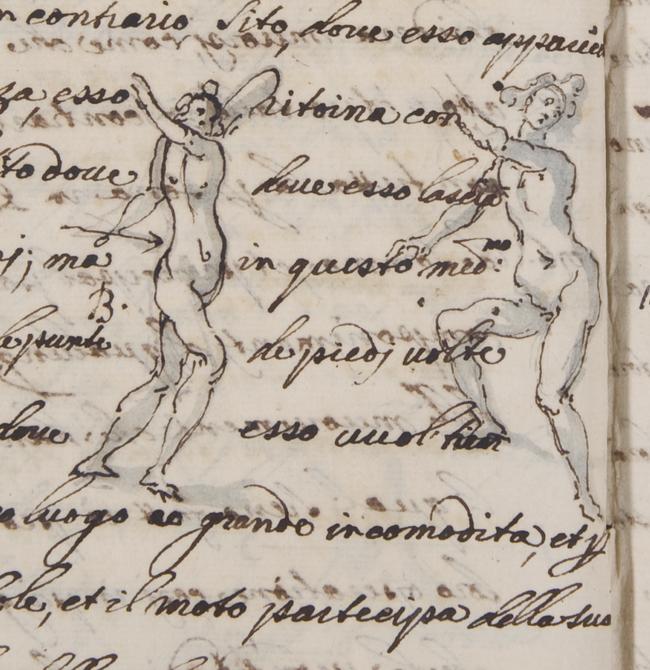 contrario sito, dove esso
za esso ritoina con
to dove dove esso lascia
ma in questo med:mo
B.
le punte de piedj volte
dove esso vuol tirar
luogo ao grande incomodita, et
ole, et il moto partecipa della suo